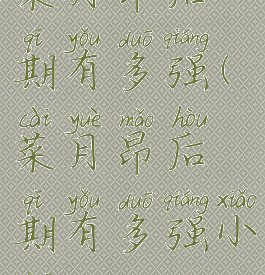 菜月昂后
qī yǒu duō qiáng
期有多强(
cài yuè mǎo hòu
菜月昴后
qī yǒu duō qiáng xiǎo
期有多强小